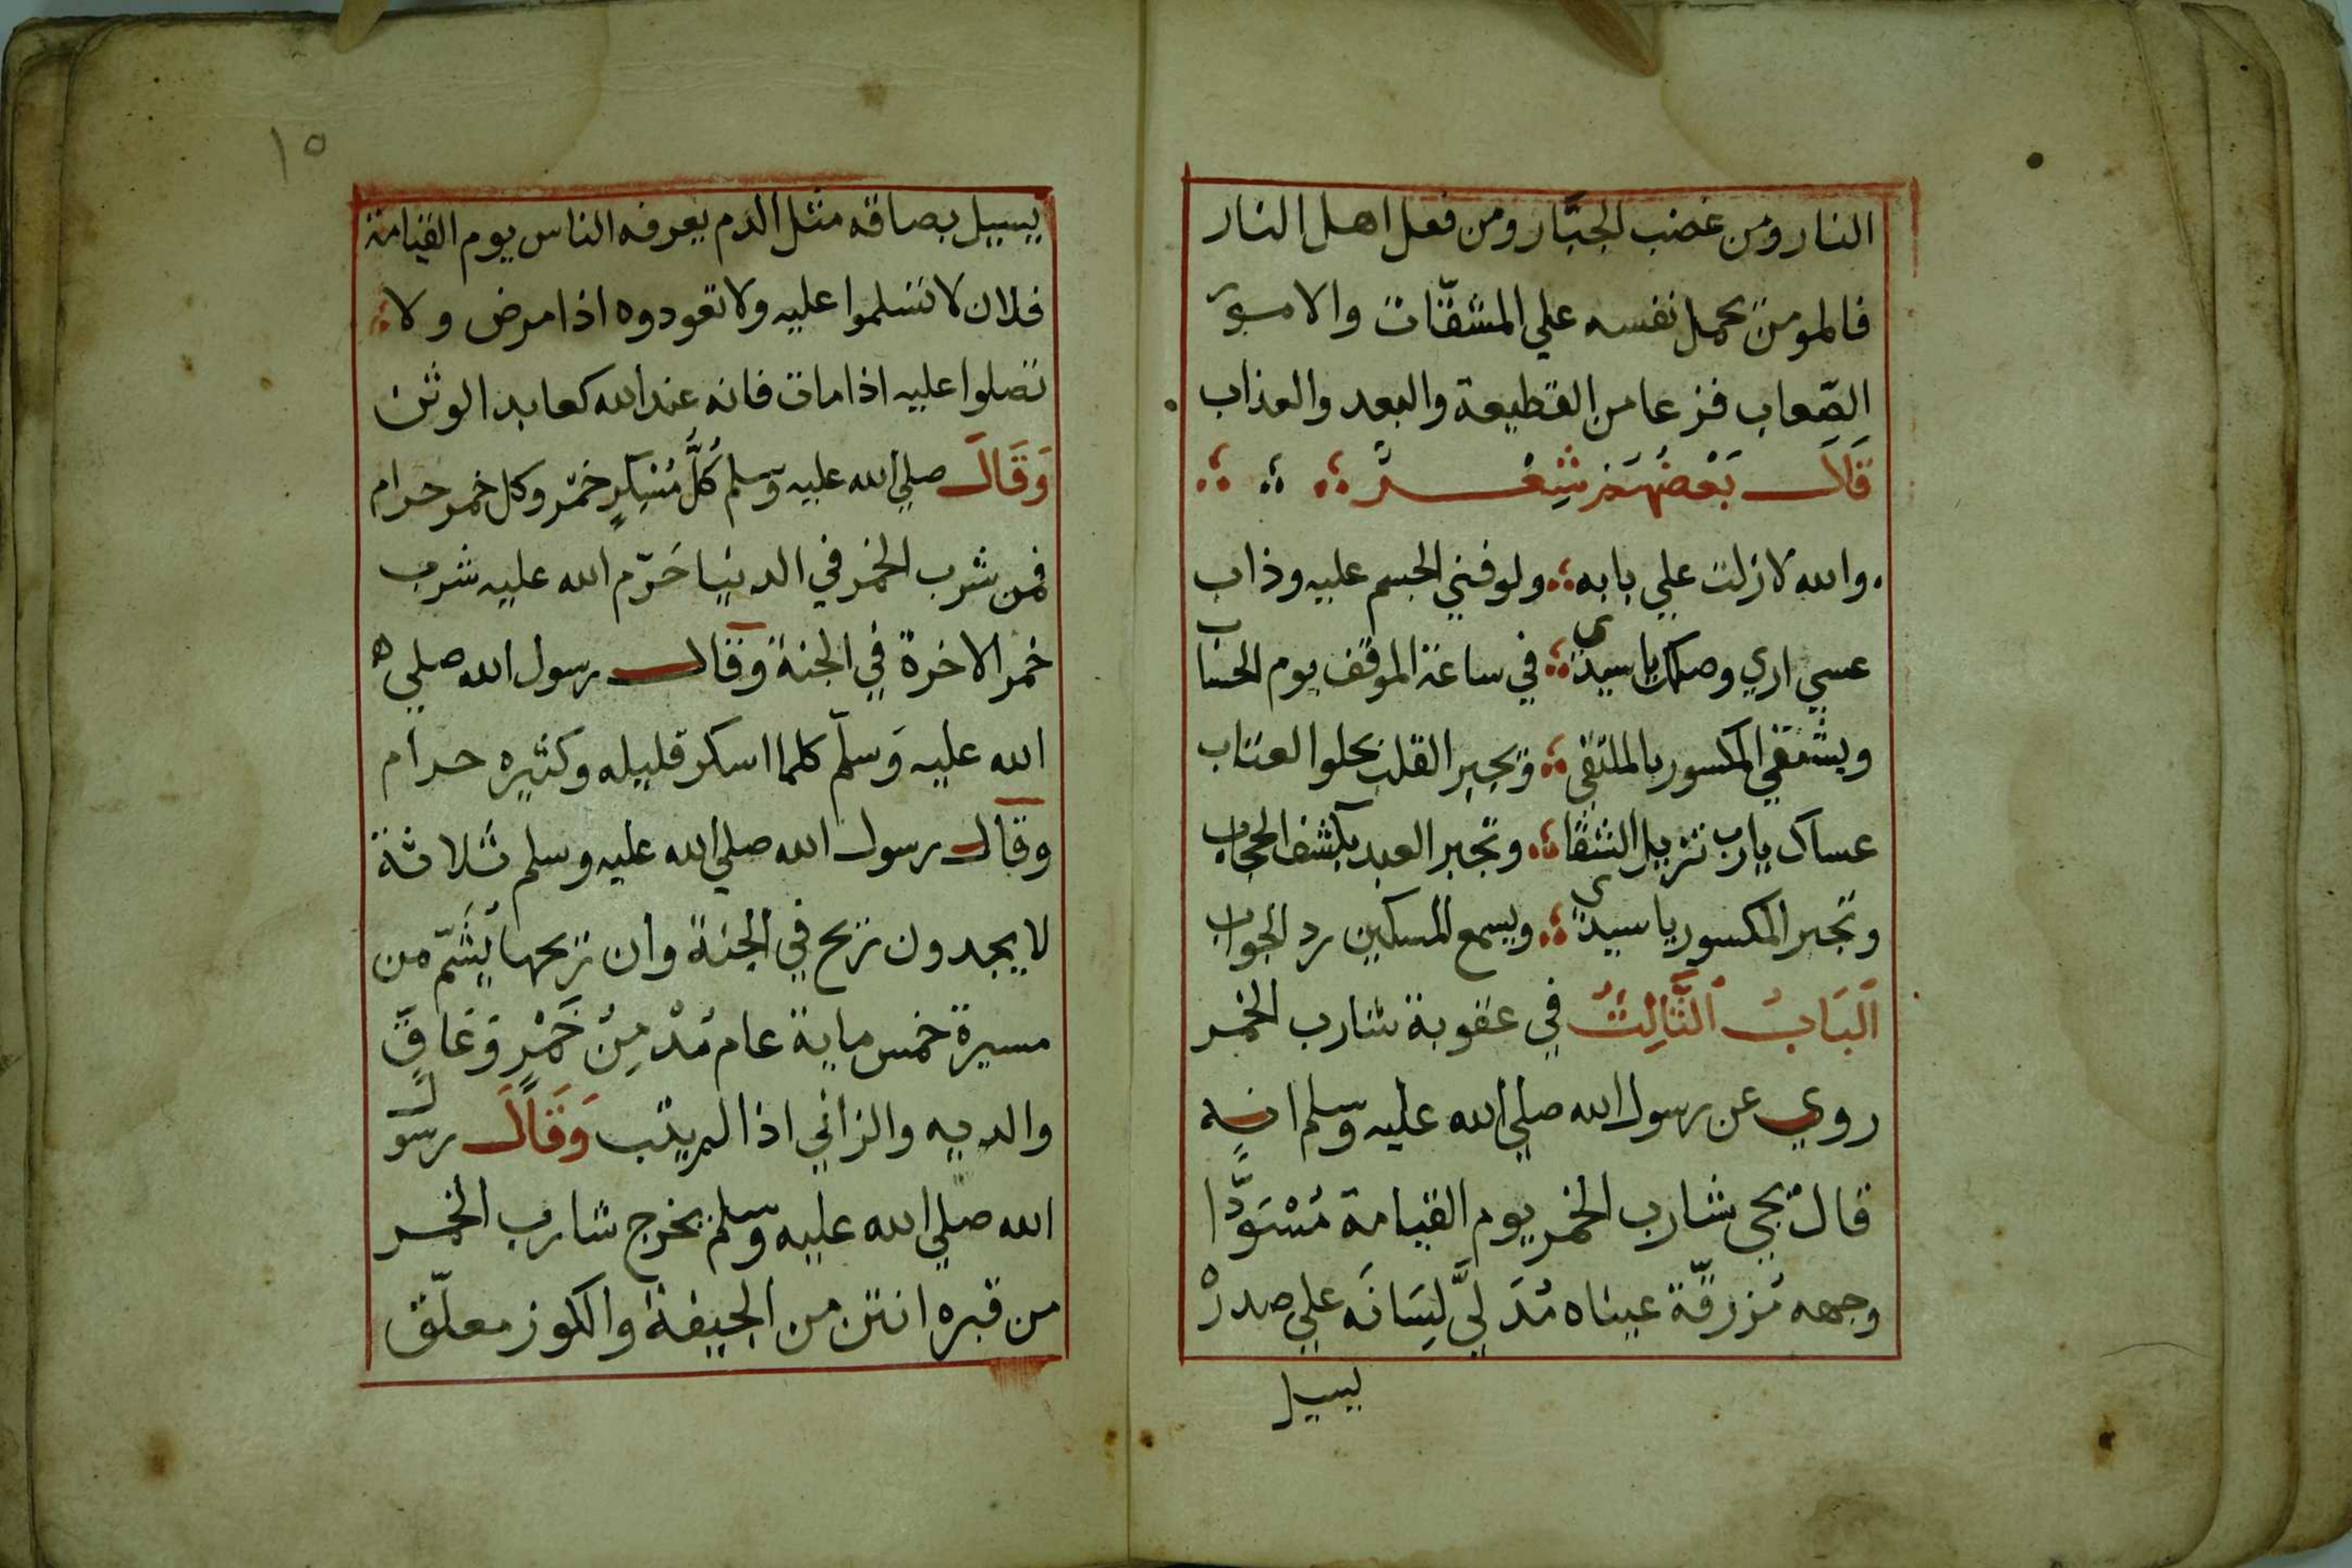 النار ومن غضب الجبَّار ومن فعل اهل النار
فالمومن يحمل نفسه علي المشقّات والامور
الصّعاب فزعا من القطيعة والبعد والعذاب
قَالَ بَعْضُهُمْ شِعْرٌ
والله لا زلت علي بابه ؞ ولو فني الجسم عليه وذاب
عسي اري وصلك يا سيدي ؞ في ساعة الموقف يوم الحساب
ويشتفي المكسور بالملتقي ؞ وتجبر القلب بحلوا العتاب
عساك يارب تزيل الشقا ؞ وتجبر العبد بكشف الحجاب
وتجبر المكسور يا سيدي ؞ ويسمع المسكين رد الجواب
اَلبَابُ اَلثَّالِثُ في عقوبة شارب الخمر
روي عن رسول الله صلي الله عليه وسلم انه
قال يجي شارب الخمر يوم القيامة مُسْوَدًّا
وجهه مُزرقّة عيناه مُدَلِيَّ لِسَانَه علي صدره
يسيل
١٥
يسيل بصاقه مثل الدم يعرفه الناس يوم القيامة
فلان لا تسلموا عليه ولا تعودوه اذا مرض ولا
تصلوا عليه اذا مات فانه عند الله كعابد الوثن
وَقَالَ صلي الله عليه وسلم كُلُّ مُسْكِرٍ خمْر وكل خمر حرام
فمن شرب الخمر في الدنيا حَرّم الله عليه شرب
خمر الاخرة في الجنة وقال رسول الله صلي
الله عليه وَسلّم كلما اسكر قليله وكثيره حرام
وقال رسول الله صلي الله عليه وسلم ثلاثة
لا يجدون ريح في الجنة وان ريحها يُشَمّ من
مسيرة خمس ماية عام مُدْمِنُ خَمْرٍ وَعَاقٍّ
والديه والزاني اذا لم يتب وَقَالَ رسول
الله صلي الله عليه وسلم يخرج شارب الخمر
من قبره انتن من الجيفة والكوز معلّق